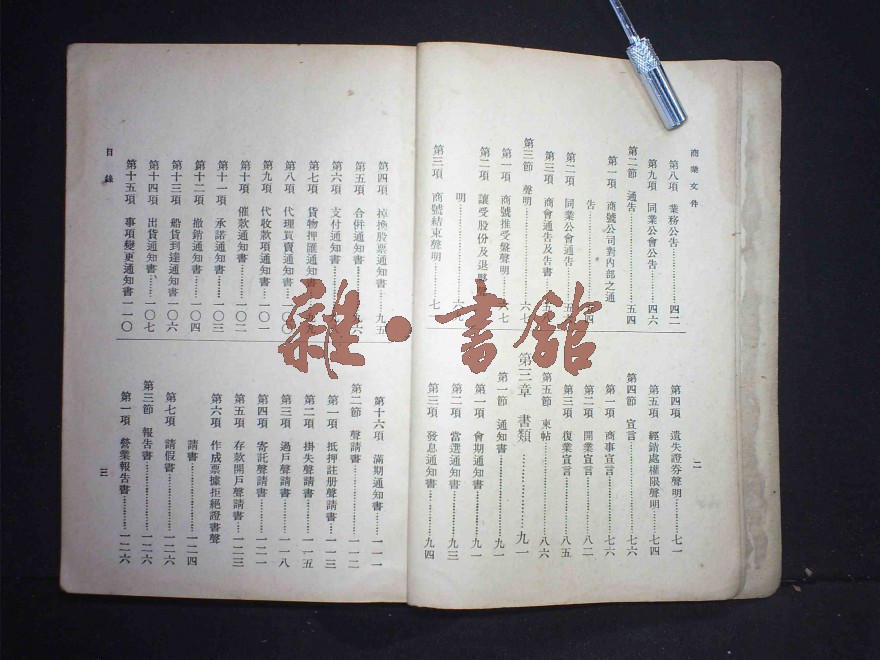 商業文件
第八項 業務公告…………四二
第九項 同業公會公告……四六
第二節 通告…………五四
第一項 商號公司對內部之通
告…………四
第二項 同業公會通告
第三項 商會通告及告書
第三節 聲明…………六七
第一項 商號推受盤聲明……六七
第二項 讓受股份及退夥
明…………六
第三項 商號結束聲明……七
第四項 遺失證券聲明……七一
第五項 經銷處權限聲明…七四
第四節 宣言…………七六
第一項 商事宣言…………七六
第二項 開業宣言…………八二
第三項 復業宣言…………八五
第五節 柬帖…………八六
第三章 書類…………九一
第一節 通知書…………九一
第一項 會期通知書……九一
第二項 當選通知書……九三
第三項 發息通知書……九四
二
第四項 掉換股票通知書…九五
第五項 合併通知書……九六
第六項 支付通知書
第七項 貨物押匯通知書
第八項 代理買賣通知書…一〇〇
第九項 代收款項通知書…一〇一
第十項 催款通知書……一〇二
第十一項 承諾通知書……一〇三
第十二項 撤銷通知書……一〇四
第十三項 船貨到達通知書一〇六
第十四項 出貨通知書……一〇七
第十五項 事項變更通知書一一〇
目錄
第十六項 滿期通知書……一一一
第二節 聲請書…………一一二
第一項 抵押註册聲請書…一一三
第二項 掛失聲請書……一一五
第三項 過戶聲請書……一一八
第四項 寄託聲請書……一二一
第五項 存款開戶聲請書…一二三
第六項 作成票據拒絕證書聲
請書…………一二四
第七項 請假書…………一二六
第三節 報告書…………一二六
第一項 營業報告書……一二六
三
雜·書館